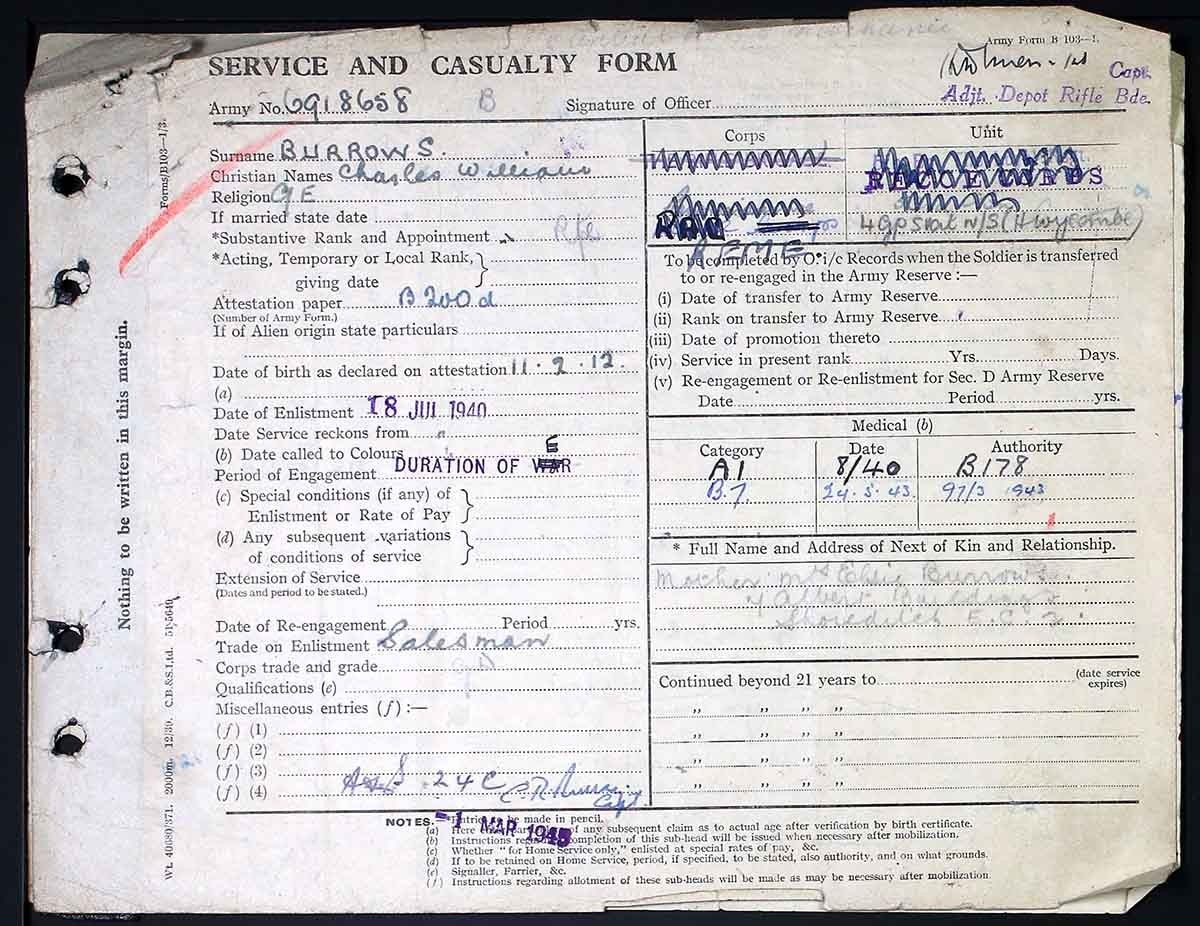 Army Form B 103—1.
SERVICE AND CASUALTY FORM
Capt.
Army No. 6918658 B Signature of Officer
Adjt. Depot Rifle Bde.
Forms/B103—1/3.
Surname BURROWS.
Christian Names Charles William
Religion CE
If married state date
*Substantive Rank and Appointment Rfn
*Acting, Temporary or Local Rank, giving date
Attestation paper B200d
(Number of Army Form.)
If of Alien origin state particulars
Date of birth as declared on attestation 11.2.12.
(a)
Date of Enlistment 18 JUL 1940
Date Service reckons from "
(b) Date called to Colours
Period of Engagement DURATION OF E
(c) Special conditions (if any) of
Enlistment or Rate of Pay
(d) Any subsequent variations
of conditions of service
Extension of Service
(Dates and period to be stated.)
Date of Re-engagement Period yrs.
Trade on Enlistment Salesman
Corps trade and grade
Qualifications (e)
Miscellaneous entries (f) :—
(f) (1)
(f) (2)
(f) (3)
(f) (4)
24 C
Capt
Corps Unit
RECCE CORPS
RAC
4 Gp Stat W/S (H. Wycombe)
R.E.M.E.
To be completed by O. i/c Records when the Soldier is transferred
to or re-engaged in the Army Reserve :—
(i) Date of transfer to Army Reserve
(ii) Rank on transfer to Army Reserve
(iii) Date of promotion thereto
(iv) Service in present rank Yrs. Days.
(v) Re-engagement or Re-enlistment for Sec. D Army Reserve
Date Period yrs.
Medical (b)
Category Date Authority
A1 8/40 B.178
B.7 24.5.43 97/3 1943
* Full Name and Address of Next of Kin and Relationship.
Mother: Mrs Elsie Burrows.
4 Albert Buildings
Shoreditch E.C.2.
Continued beyond 21 years to (date service expires)
" " " "
" " " "
" " " "
" " " "
NOTES.—Entries be made in pencil.
-1 MAR 1945
(a) Here of any subsequent claim as to actual age after verification by birth certificate.
(b) Instructions completion of this sub-head will be issued when necessary after mobilization.
(c) Whether "for Home Service only," enlisted at special rates of pay, &c.
(d) If to be retained on Home Service, period, if specified, to be stated, also authority, and on what grounds.
(e) Signaller, Farrier, &c.
(f) Instructions regarding allotment of these sub-heads will be made as may be necessary after mobilization.
Nothing to be written in this margin.
Wt. 40680/371. 2000m. 12/39. C.B.&S.Ltd. 51-5640.